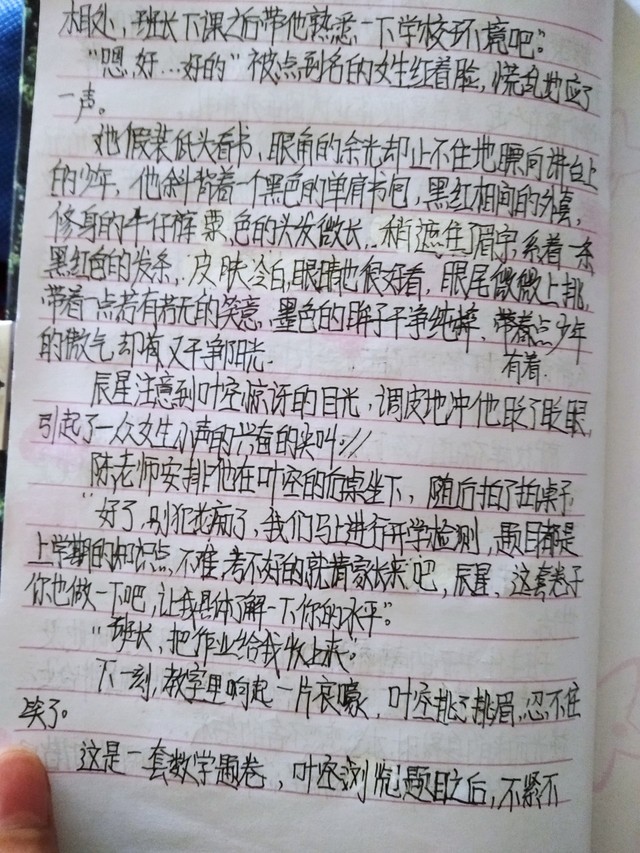 相处，班长下课之后带他熟悉一下学校环境吧。”
“嗯，好…好的”被点到名的女生红着脸，慌乱地应了
一声。
她假装低头看书，眼角的余光却止不住地瞟向讲台上
的少年，他斜背着一个黑色的单肩书包，黑红相间的外套，
修身的牛仔裤，栗色的头发微长，稍遮住了眉宇，系着一条
黑红色的发条，皮肤冷白，眼睛也很好看，眼尾微微上挑，
带着一点若有若无的笑意，墨色的眸子干净纯粹，带着点少年
的傲气却有又干净阳光.
有着.
辰星注意到叶空惊讶的目光，调皮地冲他眨了眨眼，
引起了一众女生小声的兴奋的尖叫://
陈老师安排他在叶空的后桌坐下，随后拍了拍桌子
“好了，别犯花痴了，我们马上进行开学检测，题目都是
上学期的知识点，不难，考不好的就请家长来吧，辰星、这套卷子
你也做一下吧，让我具体了解一下你的水平。”
“班长、把作业给我收上来。”
下一刻，教室里响起一片哀嚎，叶空挑了挑眉，忍不住
笑了。
这是一套数学题卷，叶空浏览题目之后，不紧不